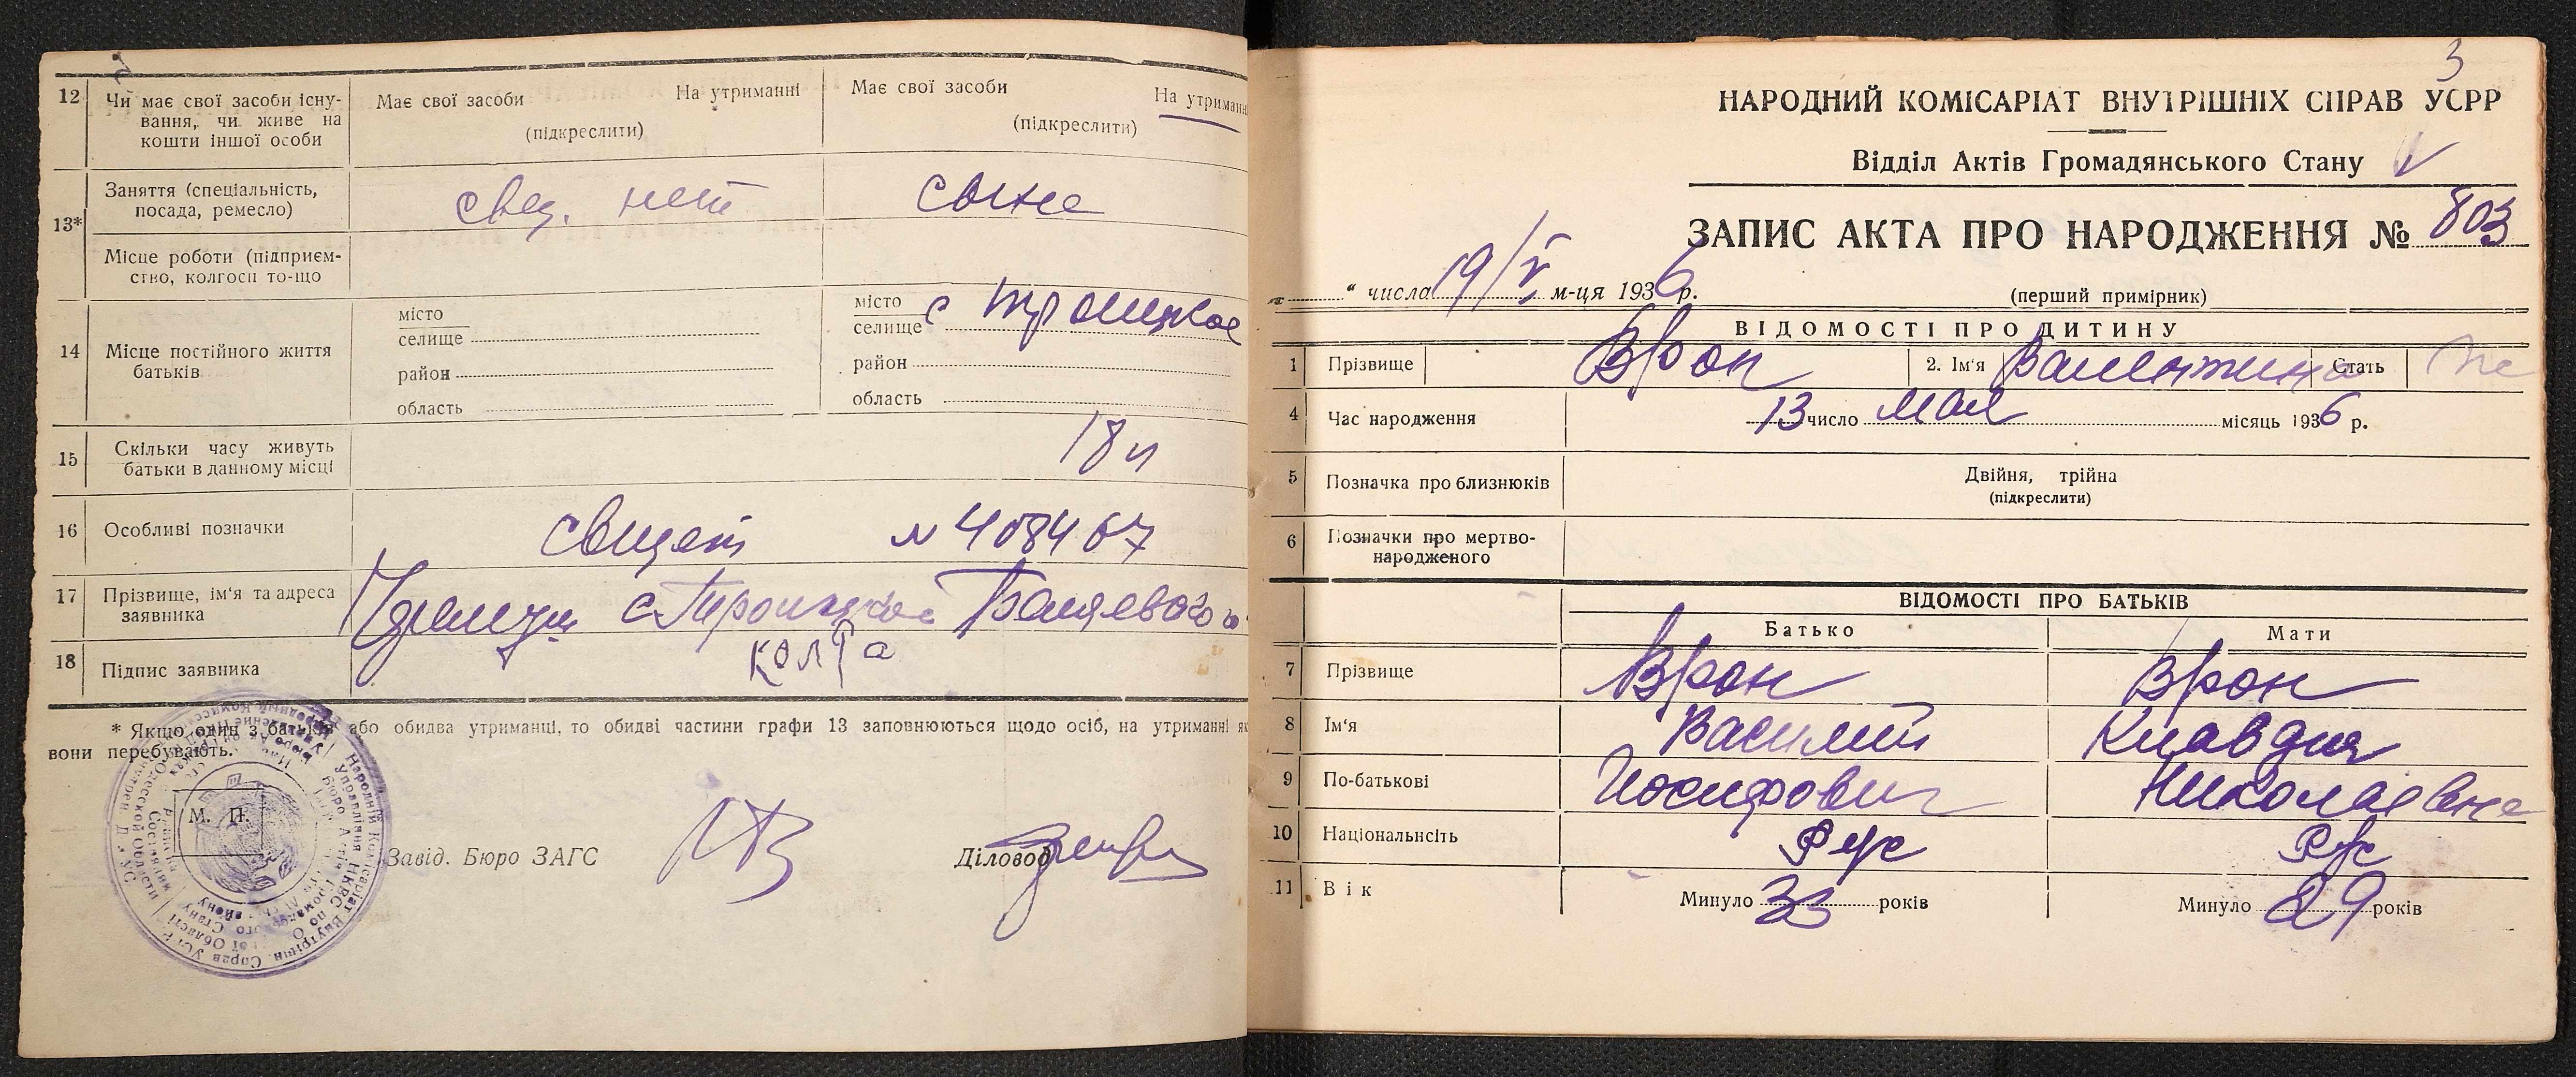 12 Чи має свої засоби існу-
вання, чи живе на
кошти іншої особи
Має свої засоби На утриманні
(підкреслити)
Має свої засоби На утриманн
(підкреслити)
13* Заняття (спеціальність,
посада, ремесло)
свед. нет
Місце роботи (підприєм-
ство, колгосп то-що
14 Місце постійного життя
батьків
місто
селище
район
область
місто
селище с Троицкое
район
область
15 Скільки часу живуть
батьки в данному місці
18 л
16 Особливі позначки
№ 408467
17 Прізвище, ім'я та адреса
заявника
с Троицкое Беляевского
18 Підпис заявника
* Якщо один з батьків або обидва утриманці, то обидві частини графи 13 заповнюються щодо осіб, на утриманні як
вони перебувають.
М. П.
Завід. Бюро ЗАГС
Діловод
3
НАРОДНИЙ КОМІСАРІАТ ВНУТРІШНІХ СПРАВ УСРР
Відділ Актів Громадянського Стану
ЗАПИС АКТА ПРО НАРОДЖЕННЯ № 803
" числа 19/V м-ця 1936 р.
(перший примірник)
ВІДОМОСТІ ПРО ДИТИНУ
1 Прізвище Врон 2. Ім'я Валентина Стать же
4 Час народження 13 число мая місяць 1936 р.
5 Позначка про близнюків Двійня, трійна
(підкреслити)
6 Позначки про мертво-
народженого
ВІДОМОСТІ ПРО БАТЬКІВ
Батько Мати
7 Прізвище Врон Врон
8 Ім'я Василий Клавдия
9 По-батькові Иосифович Николаевна
10 Національнсіть Рус Рус
11 Вік Минуло 33 років Минуло 29 років